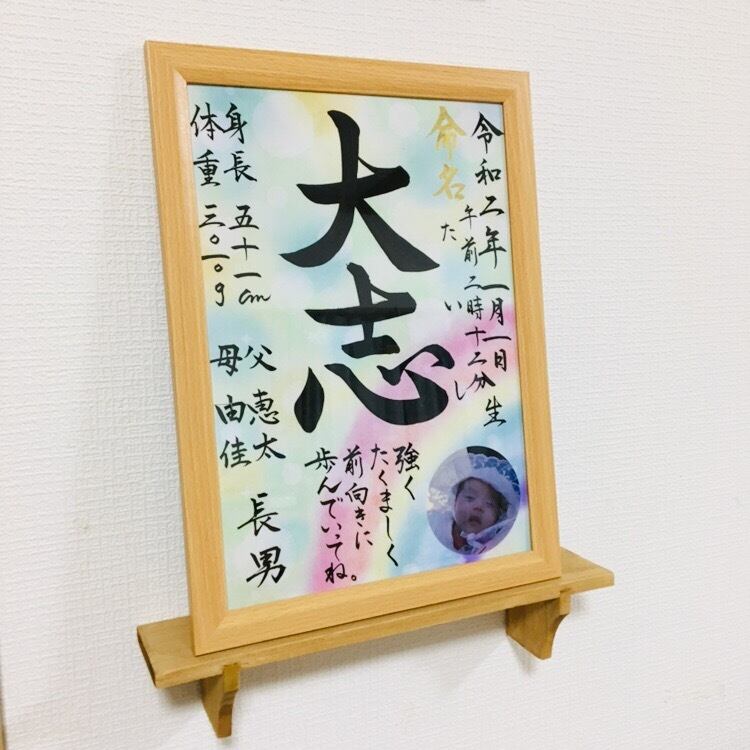 令和二年一月一日
午前二時十二分生
命名
大志
たいし
強く
たくましく
前向きに
歩んでいってね。
身長 五十一cm
体重 三〇一〇g
父 恵太
母 由佳
長男